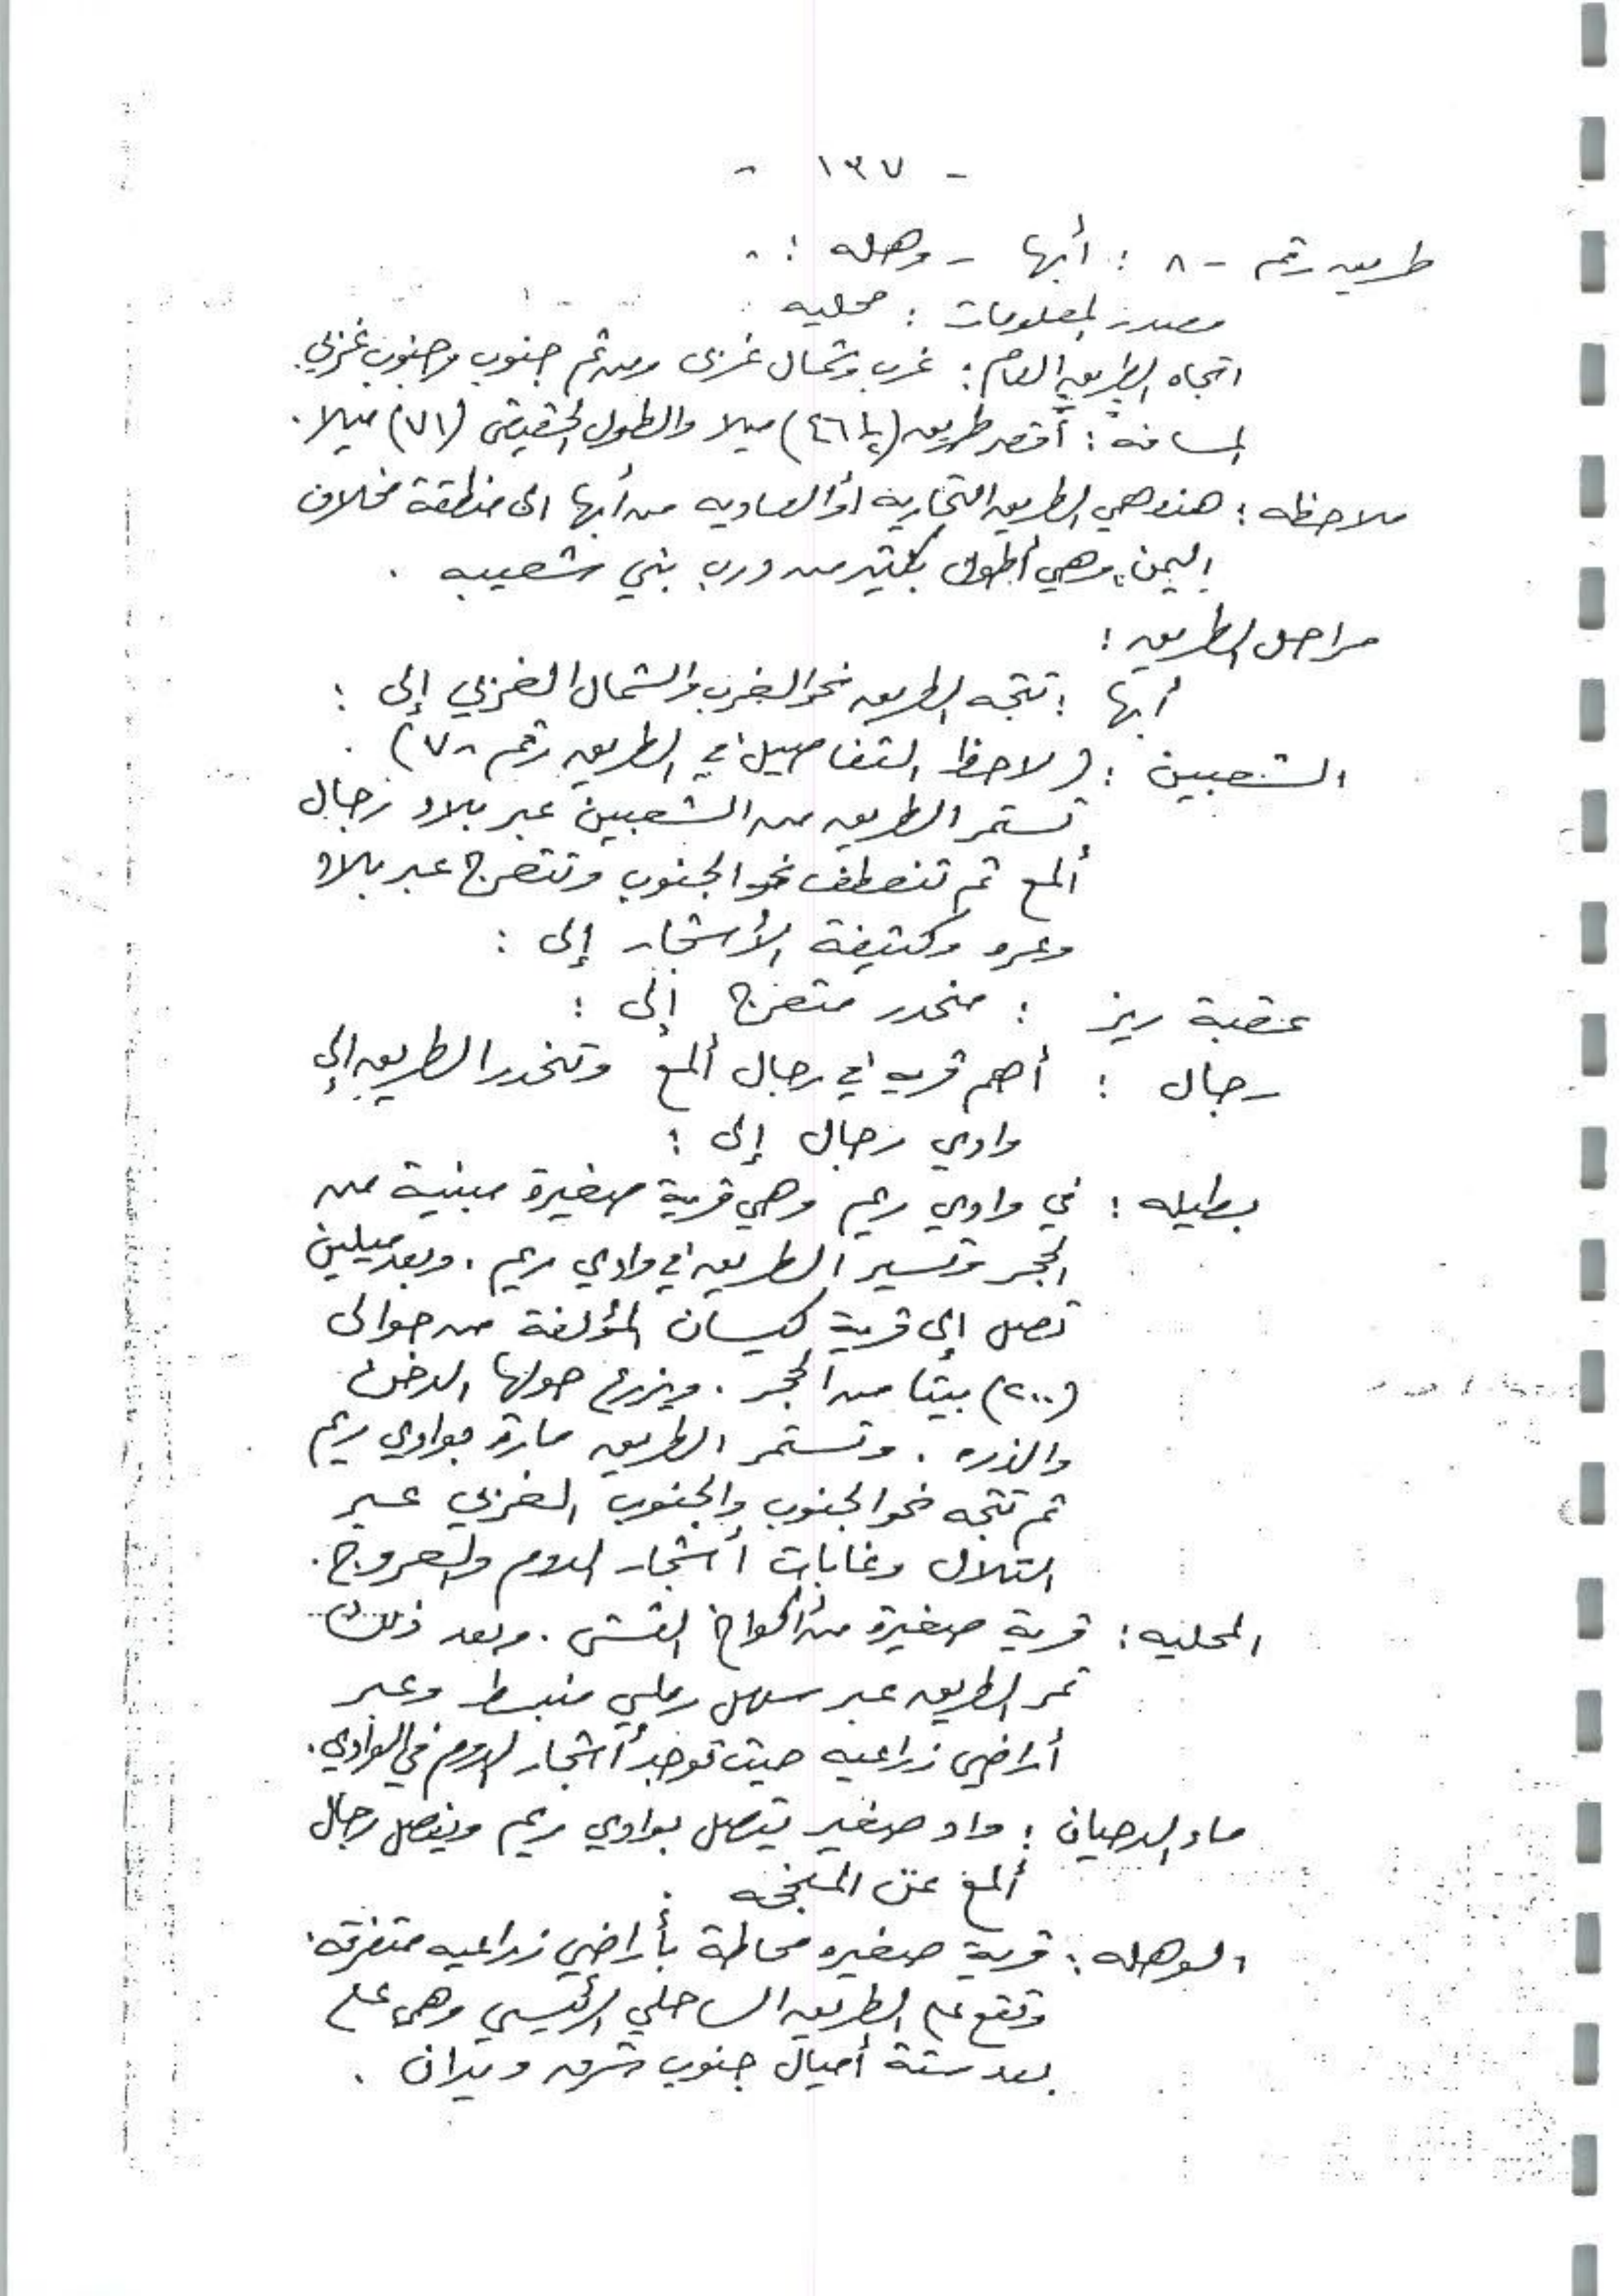 - ١٣٧ -
طريق رقم - ٨ : أبها - وهله : -
مصدر المعلومات : محليه
اتجاه الطريق العام : غرب وشمال غربى ومن ثم جنوب وجنوب غربي .
المسافة : أقصر طريق (٤٦١/٢) ميلا والطول الحقيقى (٧١) ميلا .
ملاحظه : هذه هي الطريق التجاريه أو العاديه من أبها الى منطقة مخلاف
اليمن ، وهي أطول بكثير من درب بني شعيبه .
مراحل الطريق :
أبها : تتجه الطريق نحو الغرب والشمال الغربي إلى :
الشعبين : ( لاحظ التفاصيل في الطريق رقم - ٧ ) .
تستمر الطريق من الشعبين عبر بلاد رجال
ألمع ثم تنعطف نحو الجنوب وتتعرج عبر بلاد
وعره وكثيفة الأشجار إلى :
عقبة ريز : منحدر متعرج إلى :
رجال : أهم قريه في رجال ألمع وتنحدر الطريق إلى
وادي رجال إلى :
بطيله : في وادي ريم وهي قرية صغيرة مبنية من
الحجر وتسير الطريق في وادي ريم . وبعد ميلين
تصل إلى قرية كيسان المؤلفة من حوالى
(٢٠٠) بيتا من الحجر . ويزرع حولها الدخن
والذره . وتستمر الطريق مارة بوادي ريم
ثم تتجه نحو الجنوب والجنوب الغربي عبر
التلال وغابات أشجار الدوم والعروج .
المحليه : قرية صغيرة من أكواخ القش . وبعد ذلك
تمر الطريق عبر سهل رملي منبسط وعبر
أراضي زراعيه حيث توجد أشجار الدوم في الوادي .
ماء الدحيان : واد صغير يتصل بوادي ريم ويفصل رجال
ألمع عن المنجحه .
الوهله : قرية صغيره محاطة بأراضي زراعيه متفرقه .
وتقع على الطريق الساحلي الرئيسي وهى على
بعد ستة أميال جنوب شرق ويران .